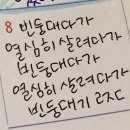 8 빈둥대다가
열심히 살려다가
빈둥대다가
열심히 살려다가
빈둥대기 로도